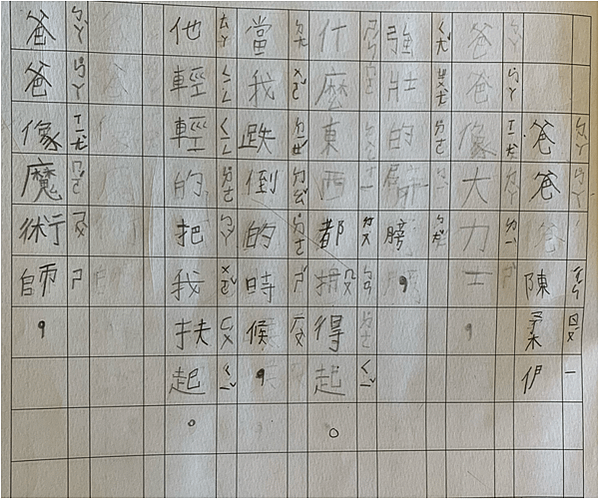 爸爸
陳柔伊
爸爸像大力士，
強壯的肩膀，
什麼東西都搬得起。
當我跌倒的時候，
他輕輕的把我扶起。
爸爸像魔術師，